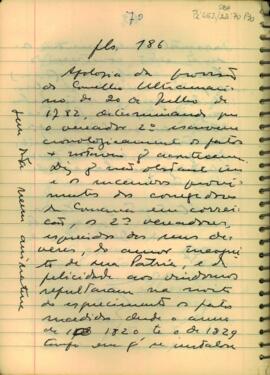 70
fls. 186
Apologia da provisão
do Conselho Ultramari-
no de 20 de Julho de
1782, determinando que
o vereador 2º escrevesse
cronologicamente os factos
e notáveis q̃ acontecessem.
Diz q̃ não obstante isso
e os incenivos provi-
mentos dos corregedores
da Comarca em correi-
ção, os 23 vereadores,
esquecidos dos seus de-
veres, do amor
de sua Patria, e da
felicidade aos vindouros
sepultaram na noite
do esquecimento o facto
sucedido desde o anno
de 1820 té o de 1829
tempo em q̃ se instalou
sem data nem assinatura